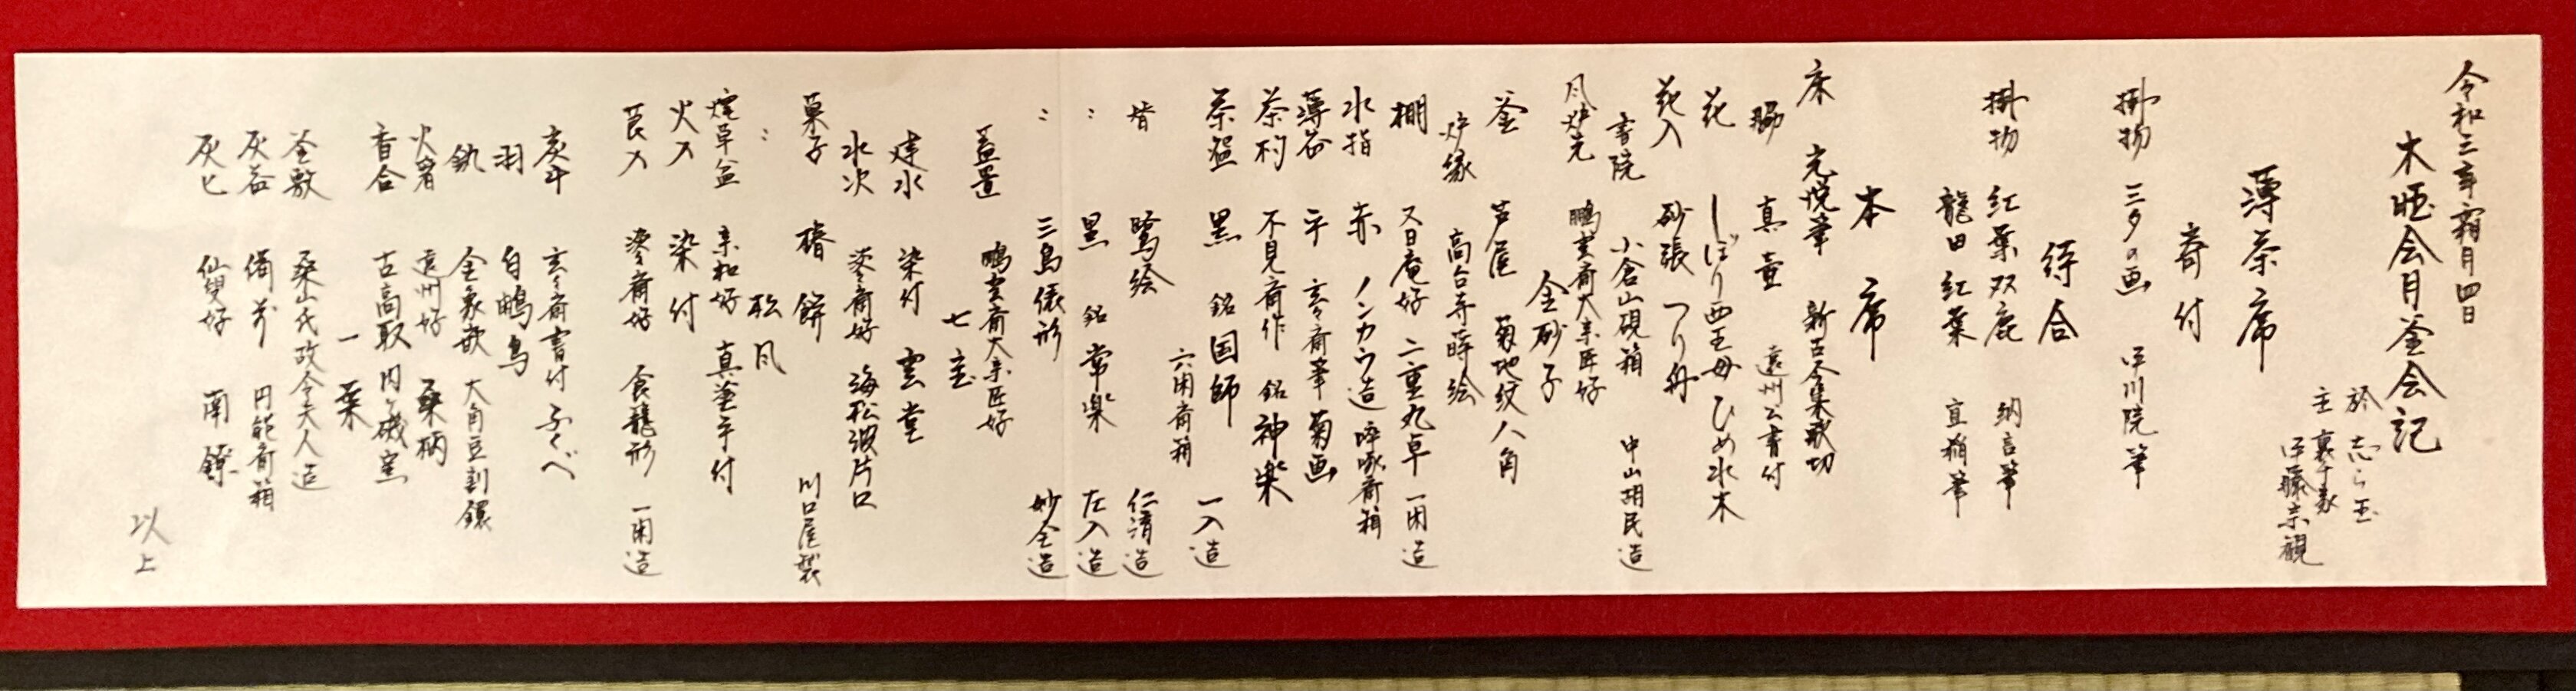 令和三年霜月四日
木曜会月釜会記
於 志ら玉
主 裏千家
伊藤宗観
薄茶席
寄付
掛物 三夕の画 伊川院筆
待合
掛物 紅葉双鹿 納言筆
龍田紅葉 直齋筆
本席
床 光悦筆 新古今集歌切
脇 真壷 遠州公書付
花 しぼり西王母 ひめ水木
花入 砂張 つり舟
書院 小倉山硯箱 中山胡民造
風炉先 鵬雲斎大宗匠好
金砂子
釜 芦屋 菊地紋八角
炉縁 高台寺蒔絵
棚 又日庵好 二重丸卓 一閑造
水指 赤 ノンカウ造 啐啄斎箱
薄器 平 玄々斎筆 菊画
茶杓 不見斎作 銘 神楽
茶盌 黒 銘 国師 一入造
六閑斎箱
替 鷺絵 仁清造
〃 黒 銘 常楽 左入造
〃 三島俵形 妙全造
蓋置 鵬雲斎大宗匠好
七宝
建水 染付 雲堂
水次 淡々斎好 海松波片口
菓子 椿餅 川口屋製
〃 松風
煙草盆 宗和好 真塗手付
火入 染付
莨入 淡々斎好 食籠形 一閑造
炭斗 玄々斎書付 ふくべ
羽 白鴫鳥
釻 金象嵌 大角豆割鐶
火箸 遠州好 桑柄
香合 古高取 内ヶ磯窯
一葉
釜敷 桑山氏政令夫人造
灰器 備前 円能斎箱
灰匕 仙叟好 南鐐
以上